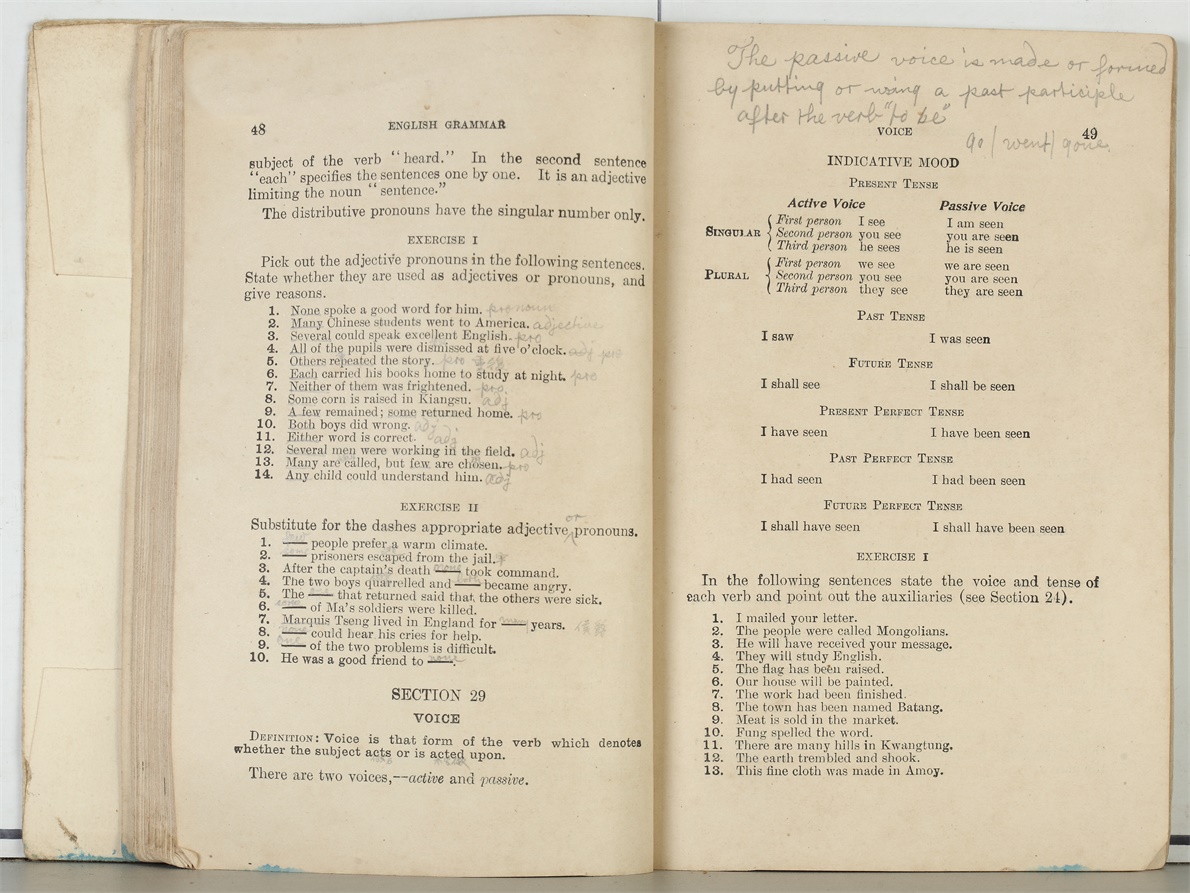 48 ENGLISH GRAMMAR
subject of the verb “heard.” In the second sentence
“each” specifies the sentences one by one. It is an adjective
limiting the noun “sentence.”
The distributive pronouns have the singular number only.
EXERCISE I
Pick out the adjective pronouns in the following sentences.
State whether they are used as adjectives or pronouns, and
give reasons.
1. None spoke a good word for him. pronoun
2. Many Chinese students went to America. adjective
3. Several could speak excellent English. pro
4. All of the pupils were dismissed at five o'clock. adj pro
5. Others repeated the story. pro
6. Each carried his books home to study at night. pro
7. Neither of them was frightened. pro
8. Some corn is raised in Kiangsu. adj
9. A few remained; some returned home. pro
10. Both boys did wrong. adj
11. Either word is correct. adj
12. Several men were working in the field. adj
13. Many are called, but few are chosen. pro
14. Any child could understand him. adj
EXERCISE II
or
Substitute for the dashes appropriate adjective pronouns.
1. —— people prefer a warm climate.
2. —— prisoners escaped from the jail.
3. After the captain's death —— took command.
4. The two boys quarrelled and —— became angry.
5. The —— that returned said that the others were sick.
6. —— of Ma's soldiers were killed.
7. Marquis Tseng lived in England for —— years.
8. —— could hear his cries for help.
9. —— of the two problems is difficult.
10. He was a good friend to ——.
SECTION 29
VOICE
DEFINITION: Voice is that form of the verb which denotes
whether the subject acts or is acted upon.
There are two voices,—active and passive.
The passive voice is made or formed
by putting or using a past participle
after the verb "to be"
VOICE 49
go / went / gone.
INDICATIVE MOOD
PRESENT TENSE
Active Voice Passive Voice
First person I see I am seen
SINGULAR Second person you see you are seen
Third person he sees he is seen
First person we see we are seen
PLURAL Second person you see you are seen
Third person they see they are seen
PAST TENSE
I saw I was seen
FUTURE TENSE
I shall see I shall be seen
PRESENT PERFECT TENSE
I have seen I have been seen
PAST PERFECT TENSE
I had seen I had been seen
FUTURE PERFECT TENSE
I shall have seen I shall have been seen
EXERCISE I
In the following sentences state the voice and tense of
each verb and point out the auxiliaries (see Section 24).
1. I mailed your letter.
2. The people were called Mongolians.
3. He will have received your message.
4. They will study English.
5. The flag has been raised.
6. Our house will be painted.
7. The work had been finished.
8. The town has been named Batang.
9. Meat is sold in the market.
10. Fung spelled the word.
11. There are many hills in Kwangtung.
12. The earth trembled and shook.
13. This fine cloth was made in Amoy.